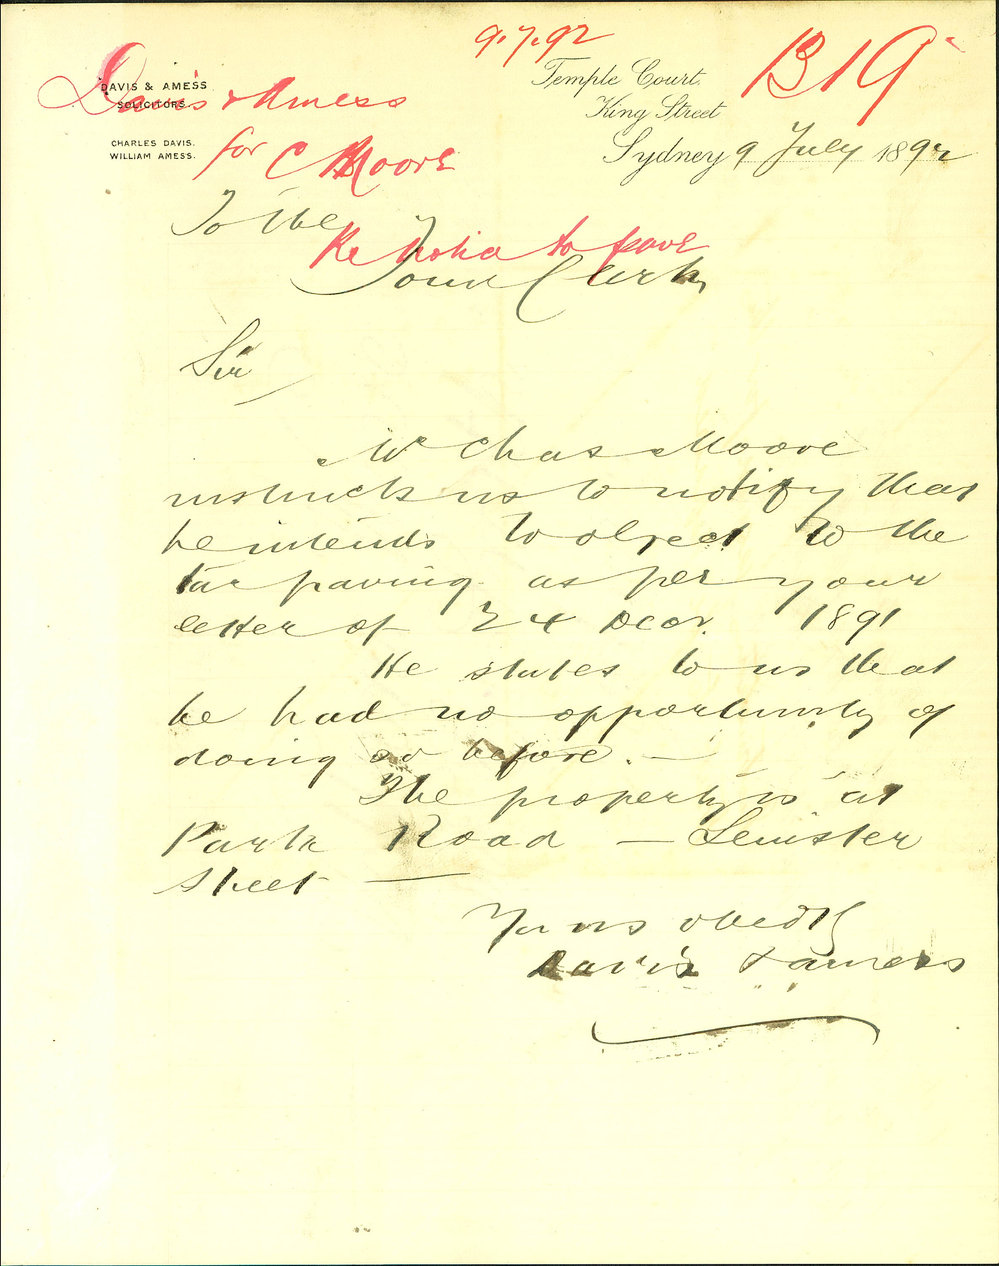 9.7.92
B19
DAVIS & AMESS
SOLICITORS.
CHARLES DAVIS.
WILLIAM AMESS.
Davis & Amess
for C Moore
Re notice to pave
Temple Court.
King Street
Sydney 9 July 1892
To the
Town Clerk
Sir
Mr Chas Moore
instructs us to notify that
he intends to object to the
tar paving as per your
letter of 24 Decr. 1891
He states to us that
he had no opportunity of
doing so before. —
The property is at
Park Road — Leinster
Street —
Yours obedtly
Davis & Amess